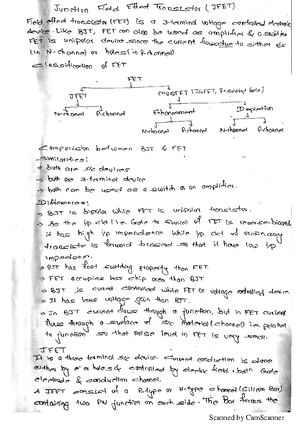 Junction Field Effect Transistor (JFET)
Field effect transistor (FET) is a 3-terminal voltage controlled electronic
device. Like BJT, FET can also be used as amplifier & a switch
FET is unipolar device since the current flow due to either e's
(in N-channel or holes in P-channel)
Classification of FET
FET
JFET
MOSFET (IGFET, Insulated Gate)
N-channel P-channel
Enhancement Depletion
N-channel P-channel N-channel P-channel
Comparison between BJT & FET
Similarities:
both are s/c devices
both are 3-terminal device
both can be used as a switch or an amplifier.
Differences:
BJT is bipolar while FET is unipolar transistor.
As the i/p ckt i.e. Gate to source of FET is reverse biased
it has high i/p impendance while i/p ckt of ordinary
transistor is forward biased so that it have low i/p
impedance.
BJT has fast switching property than FET.
FET occupies less chip area than BJT
BJT is current controlled while FET is voltage controlled device
It has less voltage gain than BJT.
In BJT current flows through a junction, but in FET current
flows through a surface of s/c material (channel) i.e. parallel
to junction so that noise level in FET is very small.
JFET
It is a three terminal s/c device. Current conduction is done
either by e's or holes & controlled by electric field both Gate
electrode & conduction channel.
A JFET consist of a P-type or N-type channel (silicon Bar)
containing two PN junction on each side. The Bar forms the
Scanned by CamScanner